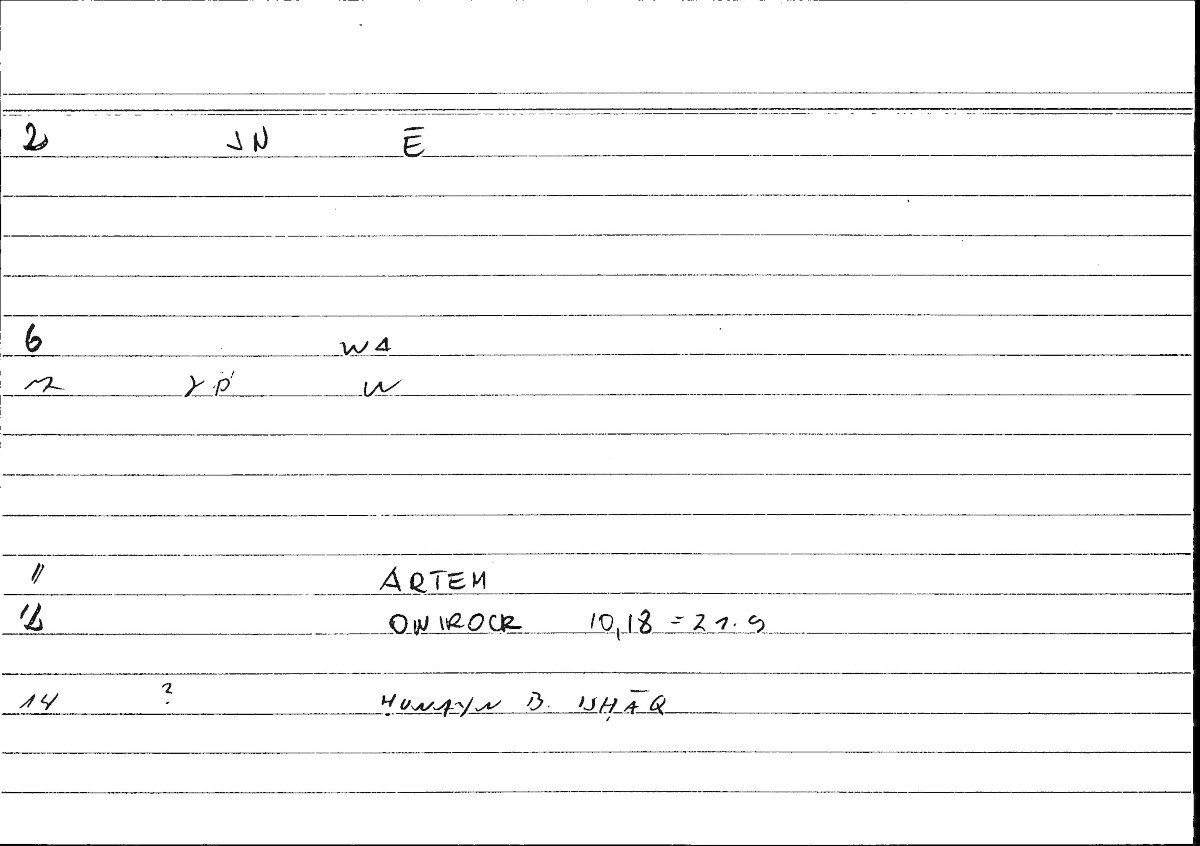 2 JN Ē
6 W
W
11 ARTEM
12 ONIROCR 10,18 = 21.9
14 ? ḤUNAYN B. ISḤĀQ